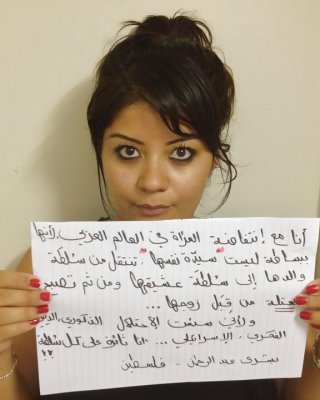 أنا مع إنتفاضة المرأة في العالم العربي، لأنها
ببساطة ليست "سيدة نفسها" تنتقل من سلطة
والدها إلى سلطة عشيقها ومن ثم تصبح
محتلة من قبل زوجها.
ولأني سئمت الاحتلال الذكوري، الديني
الفكري، الإسرائيلي .... أنا ثائرة على كل سلطة
!!
بشرى عبد الرحمن - فلسطين